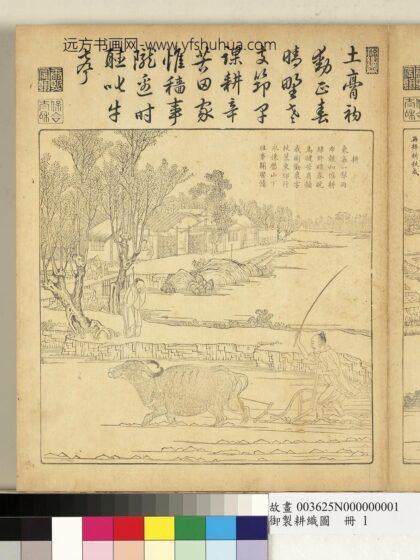 远方书画网-www.yfshuhua.com
土膏初
動正春
晴野老
支筇早
課耕辛
苦田家
惟穡事
隴邊時
聽叱牛
聲
耕
東皋一犁雨
布穀初催耕
綠野暗春曉
烏犍苦肩赬
我銜勸農字
杖策東郊行
永懷歷山下
往事關聖情
故畫 003625N000000001
御製耕織圖 冊 1